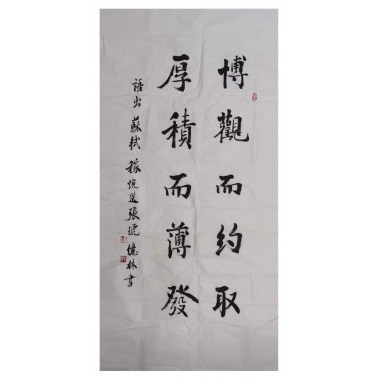 博觀而約取
厚積而薄發
語出蘇軾稼說送張琥 憶林書